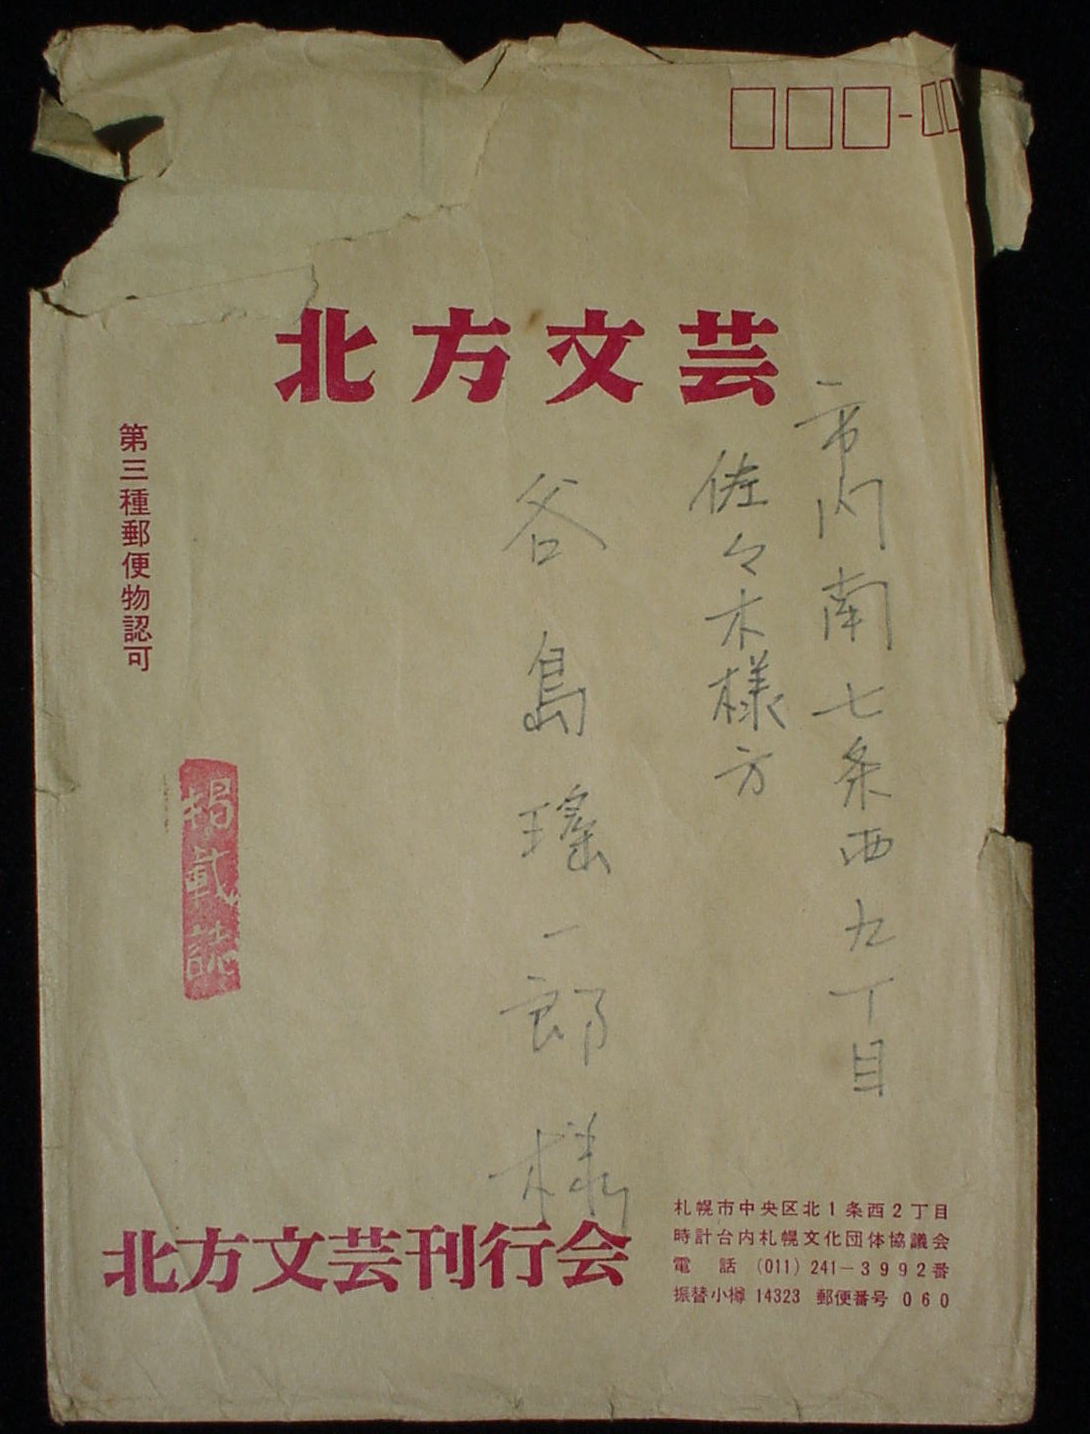 北方文芸
市内南七条西九丁目
佐々木様方
谷島瑤一郎様
第三種郵便物認可
掲載誌
北方文芸刊行会
札幌市中央区北1条西2丁目
時計台内札幌文化団体協議会
電 話 (011) 241-3992番
振替小樽 14323 郵便番号 060